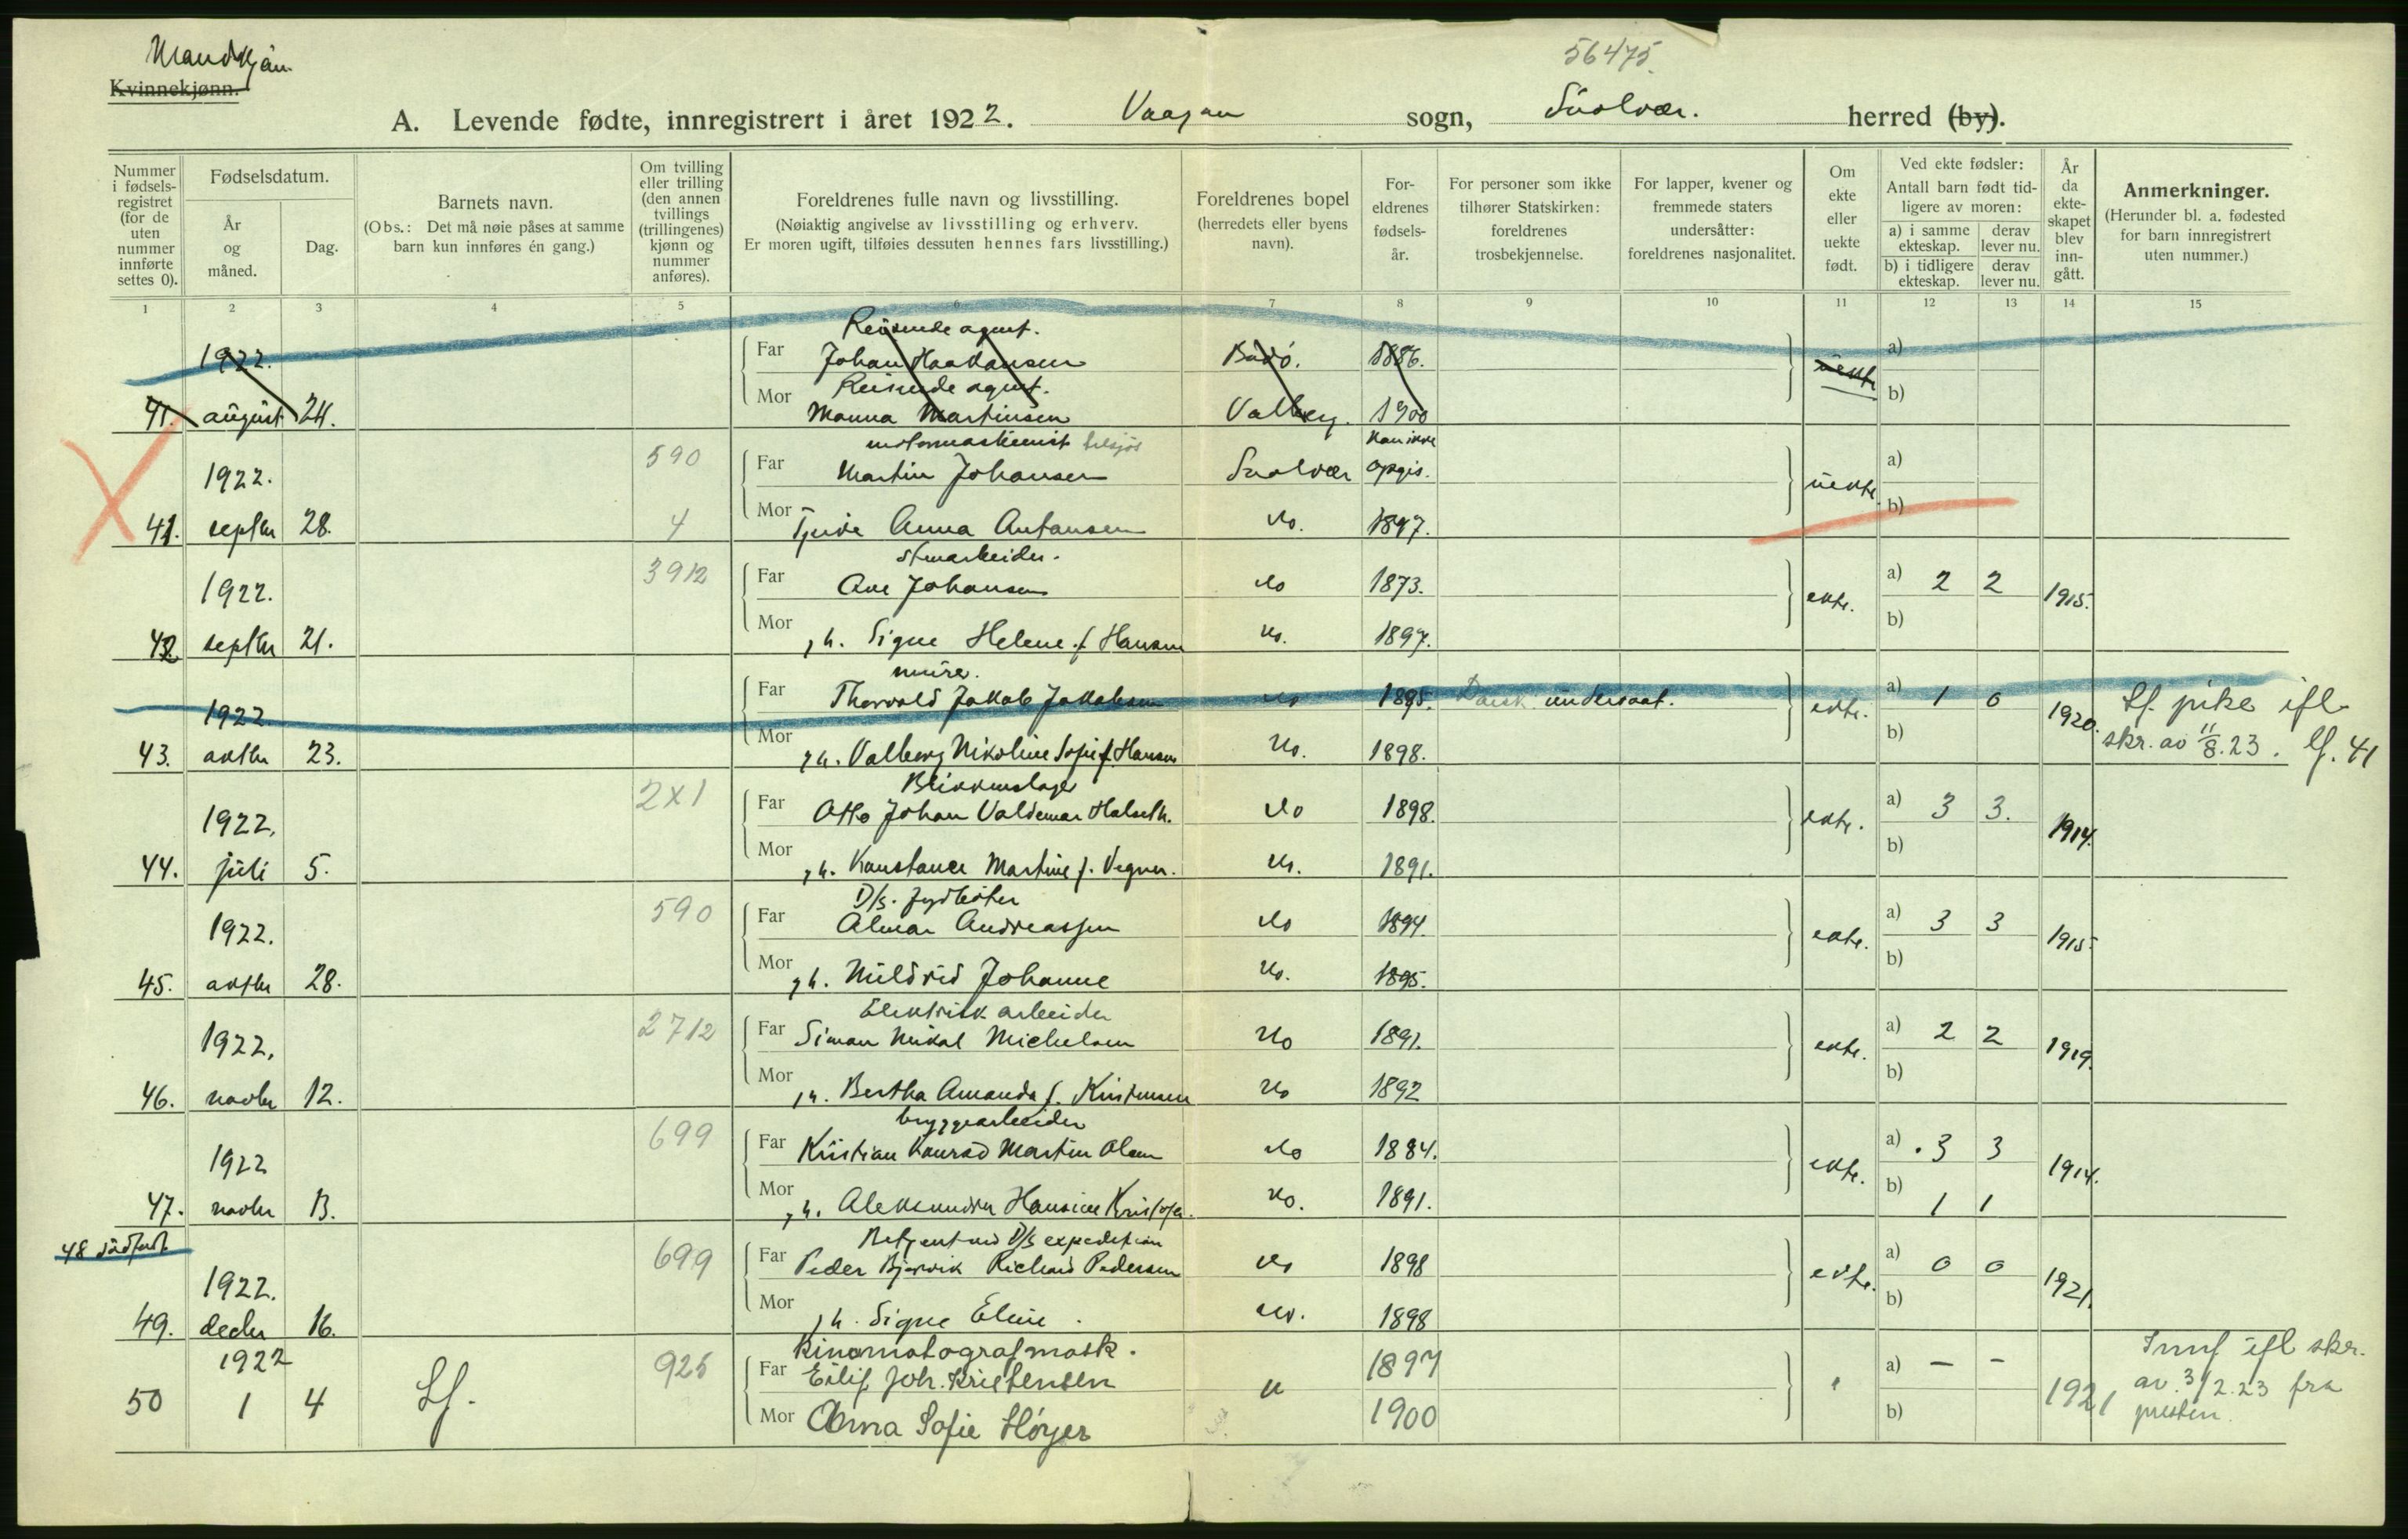 Mandkjøn.
Kvinnekjønn.
56475.
A. Levende fødte, innregistrert i året 1922. Vaagan sogn, Svolvær. herred (by).
Nummer i fødsels- registret (for de uten nummer innførte settes 0).
Fødselsdatum.
År og måned.
Dag.
Barnets navn.
(Obs.: Det må nøie påses at samme barn kun innføres én gang.)
Om tvilling eller trilling (den annen tvillings (trillingenes) kjønn og nummer anføres).
Foreldrenes fulle navn og livsstilling.
(Nøiaktig angivelse av livsstilling og erhverv.
Er moren ugift, tilføies dessuten hennes fars livsstilling.)
Foreldrenes bopel
(herredets eller byens navn).
For- eldrenes fødsels- år.
For personer som ikke tilhører Statskirken: foreldrenes trosbekjennelse.
For lapper, kvener og fremmede staters undersåtter: foreldrenes nasjonalitet.
Om ekte eller uekte født.
Ved ekte fødsler:
Antall barn født tid- ligere av moren:
a) i samme ekteskap.
derav lever nu.
b) i tidligere ekteskap.
derav lever nu.
År da ekte- skapet blev inn- gått.
Anmerkninger.
(Herunder bl. a. fødested for barn innregistrert uten nummer.)
1 2 3 4 5 6 7 8 9 10 11 12 13 14 15
Reisende agent.
1922. Far Johan Haakansen Bodø. 1886. uekte a)
Reisende agent.
41. august 24. Mor Manna Martinsen Valberg. 1900 b)
motormaskinist tilsjøs Kan ikke
1922. 590 Far Martin Johansen Svolvær opgis. uekte a)
41. septbr 28. 4 Mor Tjene Anna Antonsen do. 1897. b)
stenarbeider.
1922. 3912 Far Ove Johansen do 1873. ekte. a) 2 2 1915.
42 septbr 21. Mor h. Signe Helene f. Hansen do. 1897. b)
murer.
1922 Far Thorvald Jakob Jakobsen do 1895. Dansk undersaat. ekte. a) 1 0 1920. Lf. pike ifl.
43. oktbr 23. Mor h. Valborg Nikoline Sofie f. Hansen do. 1898. b) skr. av 11/8.23. lf. 41
Blikkenslager
1922. 2x1 Far Otto Johan Valdemar Halseth. do 1898. ekte. a) 3 3. 1914.
44. juli 5. Mor h. Konstance Martine f. Vegner. do. 1891. b)
D/s. fyrbøter
1922. 590 Far Almar Andreassen do 1894. ekte. a) 3 3 1915.
45. oktbr 28. Mor h. Mildrid Johanne do. 1895. b)
Elektrisk arbeider
1922. 2712 Far Simon Mikal Michelsen do 1891. ekte. a) 2 2 1919.
46. novbr 12. Mor h. Bertha Amanda f. Kristensen do 1892 b)
bryggearbeider
1922 699 Far Kristian Konrad Martin Olsen do 1884. ekte. a) 3 3 1914.
47. novbr 13. Mor h. Aleksandra Hansine Kristofa. do. 1891. b) 1 1
48 dødfødt.
Betjent ved D/s expedition
1922. 699 Far Peder Bjervik Richard Pedersen do 1898 ekte. a) 0 0 1921.
49. decbr 16. Mor h. Signe Eline. do. 1898 b)
Kinomatografmask.
1922 925 Far Eilif Joh. Kristensen " 1897 " a) – – 1921 Innf ifl skr.
50 1 4 Lf. Mor Anna Sofie Høyer 1900 b) av. 3/2.23 fra
presten.